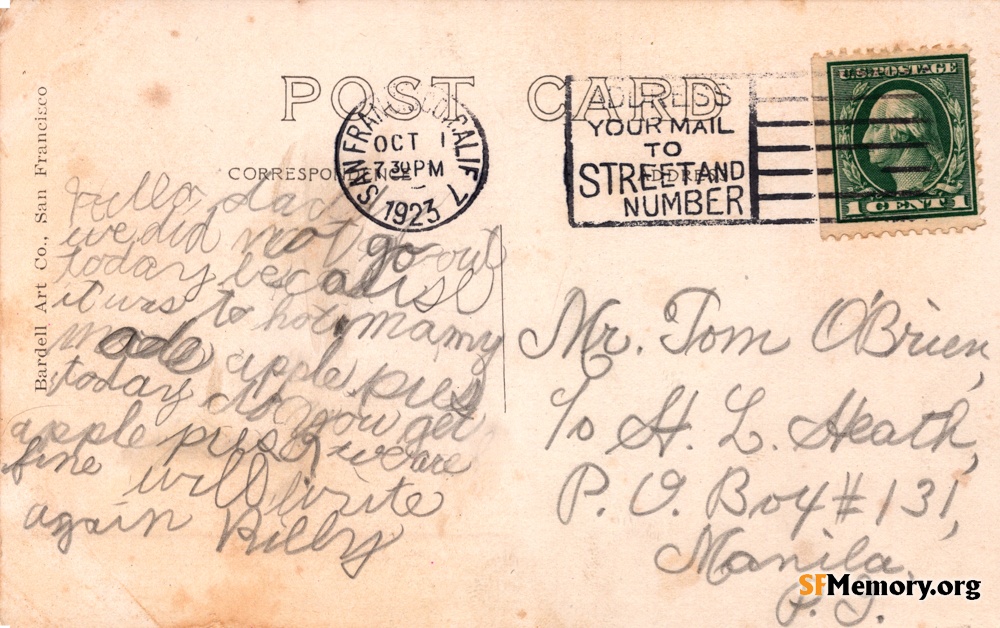 POST CARD
Bardell Art Co., San Francisco
CORRESPONDENCE
ADDRESS
SAN FRANCISCO, CALIF
OCT 1
7 30 PM
1923
7
ADDRESS
YOUR MAIL
TO
STREET AND
NUMBER
U.S. POSTAGE
1 CENT 1
Hello dad
we did not go out
today because
it was to hot mamy
made apple pies
today do you get
apple pies? we are
fine will write
again Billy
Mr. Tom O'Brien,
c/o H. L. Heath,
P. O. Box # 131,
Manila,
P. I.
SFMemory.org